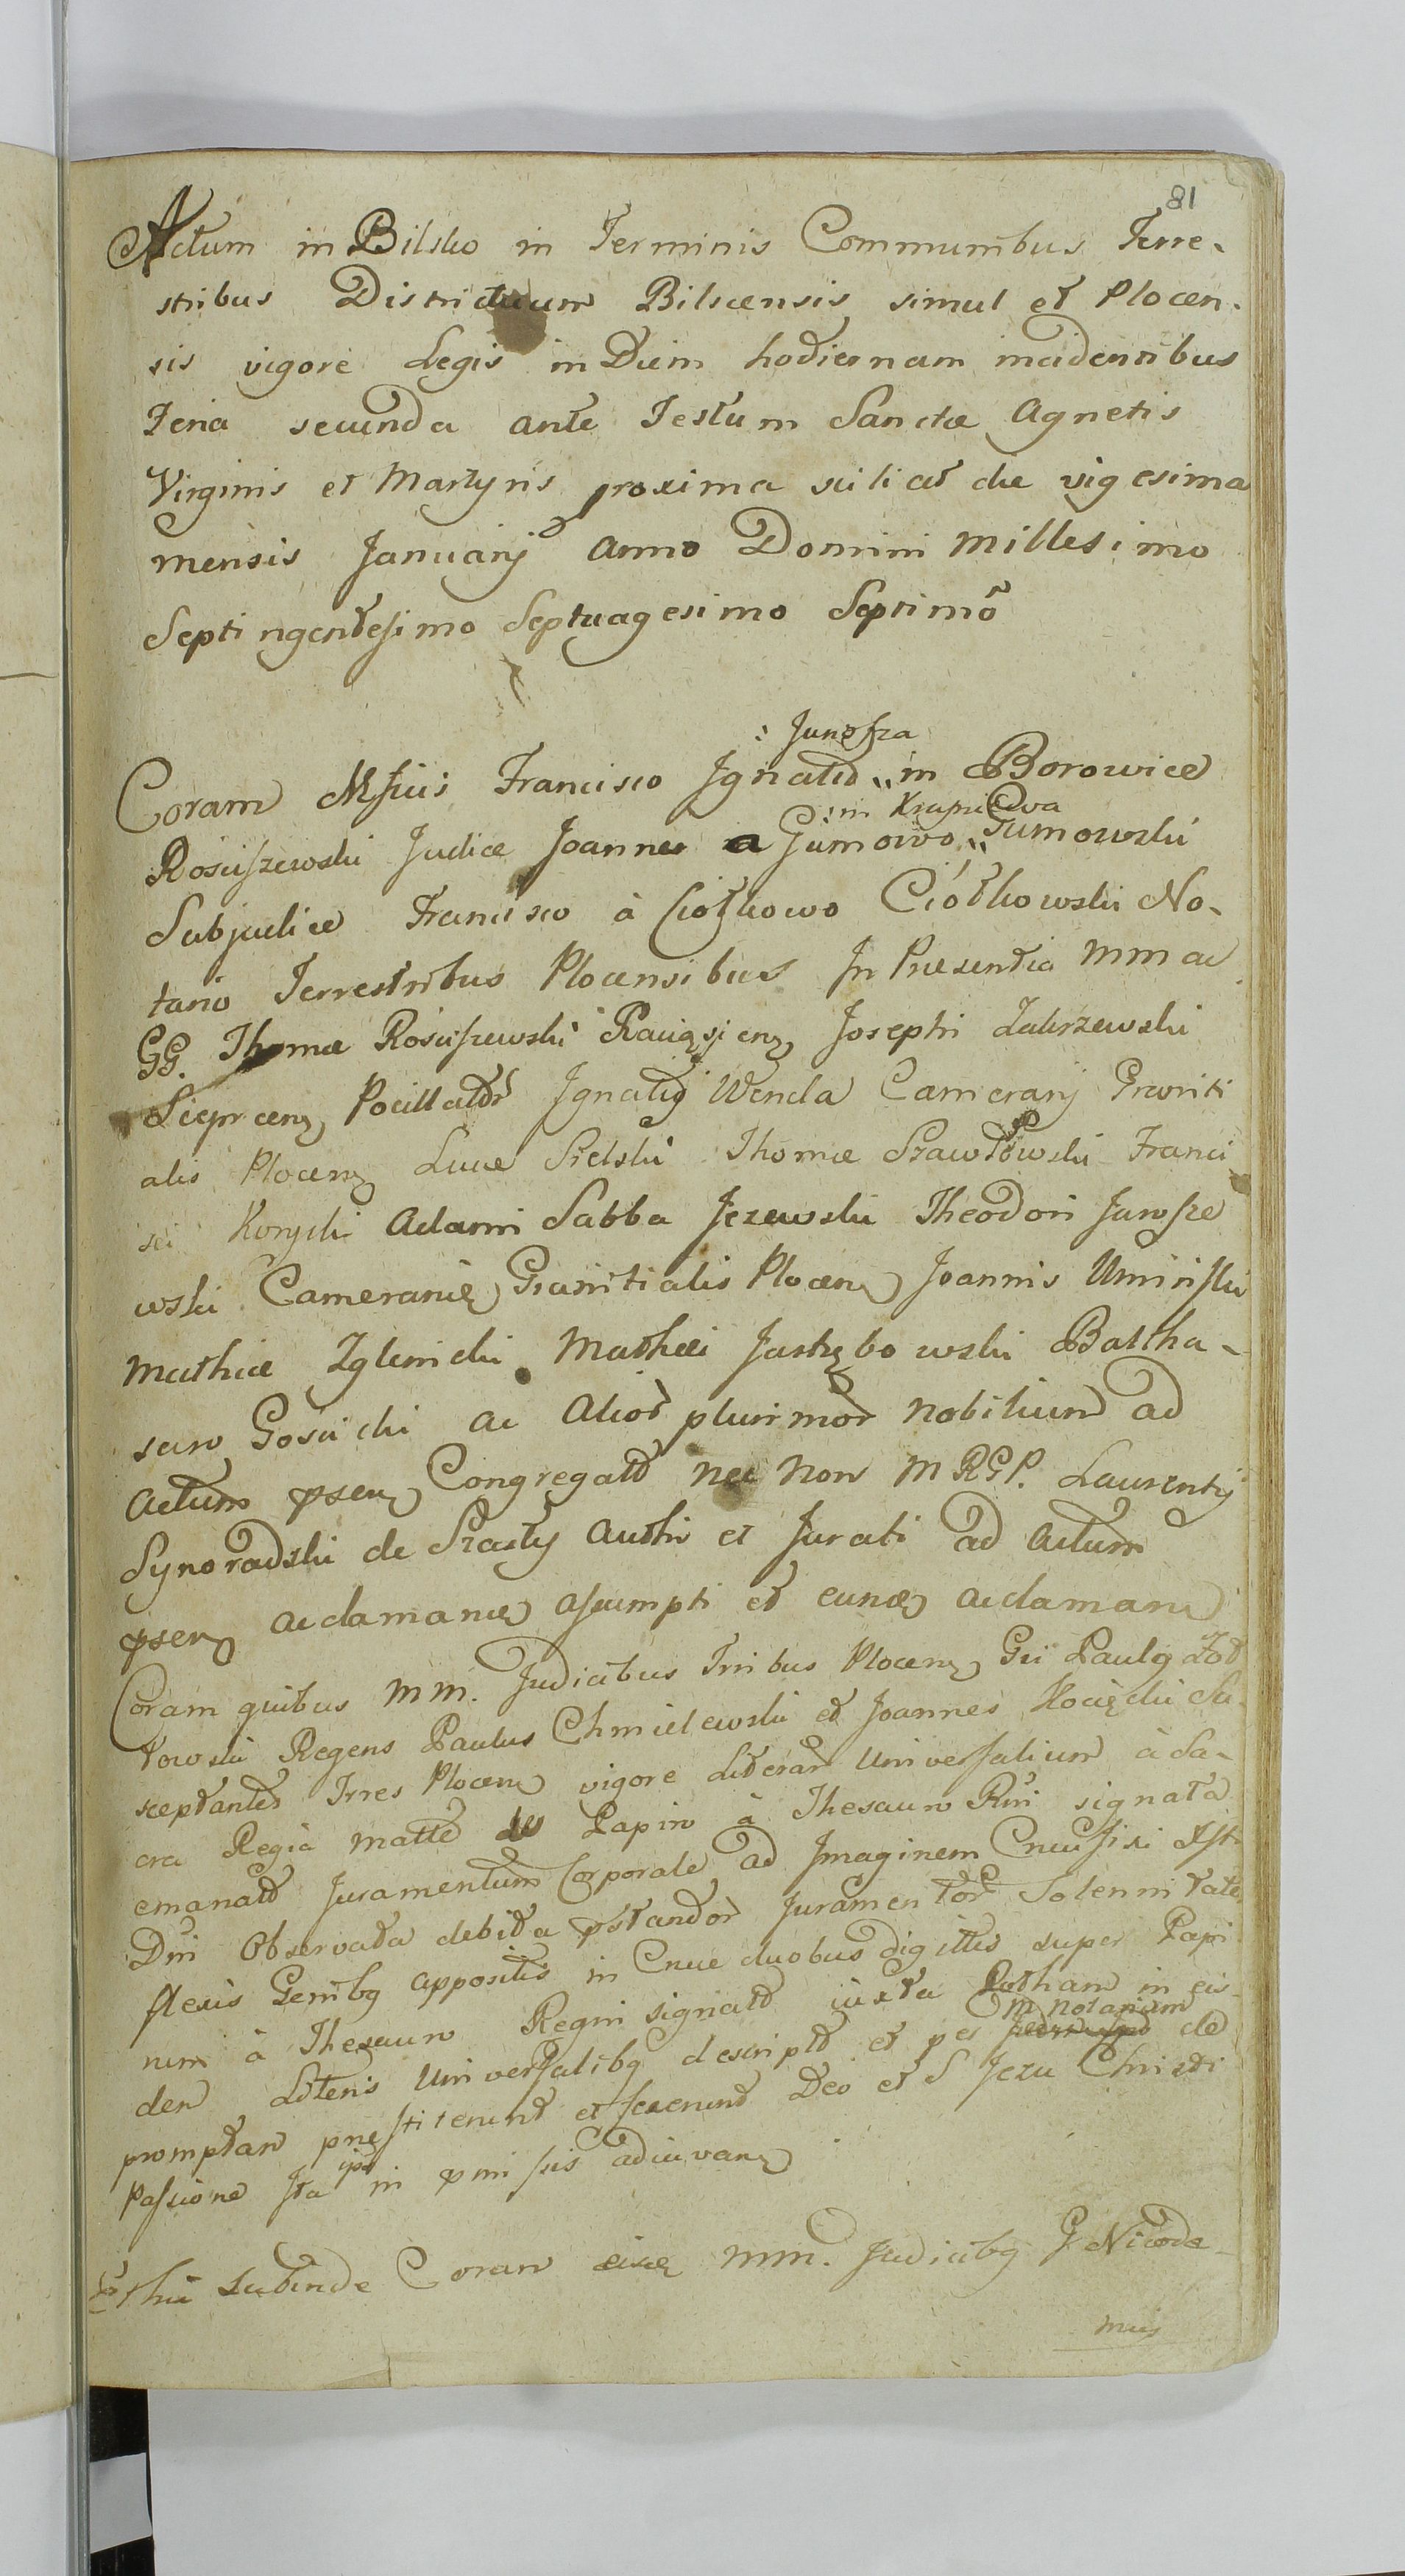 81
Actum in Bilsko in Terminis Communibus Terre-
stribus Districtuum Bilscensis simul et Plocen-
sis vigore Legis in Diem hodiernam incidentibus
Feria secunda ante Festum Sanctæ Agnetis
Virginis et Martyris proxima scilicet die vigesima
mensis Januarij Anno Domini Millesimo
Septingentesimo Septuagesimo Septimo
: Junosza
Coram Francisco Ignatio in Borowice
: in Krzpiewa
Rosciszewski Judice Joanne a Gumowo Gumowski
Subjudice Francisco à Ciołkowo Ciołkowski No-
tario Terrestribus Plocensibus In Præsentia MM ac
GG. Thomæ Rosciszewski Raciąsien Josephi Zakrzewski
Sieprcen Pocillator Ignatij Wenda Camerarij Graniti
alis Plocen Lucæ Sielski Thomæ Szawłowski Franci
sci Konycki Adami Sabba Jezewski Theodori Jarosze
wski Camerarie Granitialis Plocen Joannis Uminski
Mathiæ Zglenicki Mathei Jastrzębowski Baltha-
saro Goscicki ac Alior plurimor Nobilium ad
Actum psen Congregator nec Non M R G P. Laurentij
Synoradzki de Szasty Authi et Jurati ad Actum
psen acclamance assumpti et eunde acclamane
Coram quibus MM. Judicibus Trribus Plocen Gii Paulg Żół
towski Regens Paulus Chmielewski et Joannes Kocięcki Su-
sceptantes Trres Plocen vigore Literar Universalium à Sa-
cra Regia Matte de Papiro à Thesauro Rni signata
emanat Juramentum Corporale ad Imaginem Crucifixi Isti
Dni Observata debita pstandor Juramentor Solennitate
flexis Genibg appositis in Cruce duobus digittis super Papi
rum à Thesauro Regni signato iuxta Rotham in eis
M Notarium
dem Litteris Universalibg descripto et per de
promptam præstiterunt et fecerunt Deo et S Jezu Christi
Passione Ita ips in pmissis adiuvan
thii subinde Coram eisde MM. Judicibg G Nicode-
mus